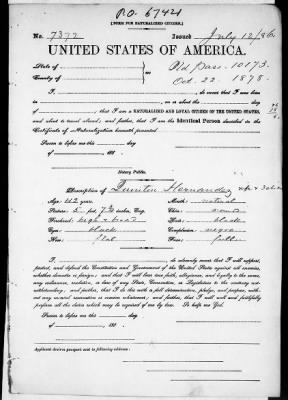 P.O. 67421
[FORM FOR NATURALIZED CITIZEN.]
No. 7372 Issued July 12/86
UNITED STATES OF AMERICA.
State of Old Pass. 10173.
County of ss: Oct. 22. 1878.
I, , do swear that I was born
in , on or about the day
of , that I am a NATURALIZED AND LOYAL CITIZEN OF THE UNITED STATES,
and about to travel abroad; and further, that I am the Identical Person described in the
Certificate of Naturalization herewith presented.
Sworn to before me this day
of , 188 .
Notary Public.
Description of Hernandez
Age: 42 years Mouth: natural
Stature: 5 feet, 7½ inches, Eng. Chin: round
Forehead: high & broad Hair: black
Eyes: black Complexion: negro
Nose: flat Face: full
I, , do solemnly swear that I will support,
protect, and defend the Constitution and Government of the United States against all enemies,
whether domestic or foreign; and that I will bear true faith, allegiance, and loyalty to the same,
any ordinance, resolution, or law of any State, Convention, or Legislature to the contrary not-
withstanding; and further, that I do this with a full determination, pledge, and purpose, with-
out any mental reservation or evasion whatsoever; and further, that I will well and faithfully
perform all the duties which may be required of me by law. So help me God.
Sworn to before me this day
of , 188 .
Applicant desires passport sent to following address: